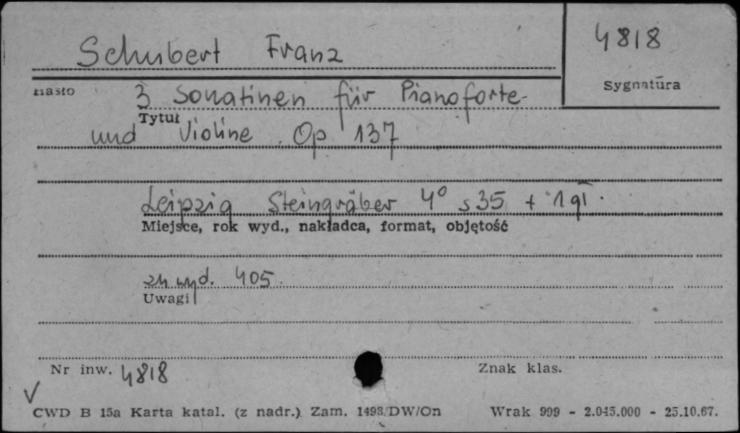 Schubert Franz
4818
Hasło
Sygnatura
3 Sonatinen für Pianoforte
Tytuł
und Violine. Op 137
Leipzig Steingräber 4° s 35 + 1 gł.
Miejsce, rok wyd., nakładca, format, objętość
zn wyd. 405.
Uwagi
Nr inw. 4818
Znak klas.
CWD B 15a Karta katal. (z nadr.) Zam. 1493/DW/On Wrak 999 - 2.045.000 - 25.10.67.